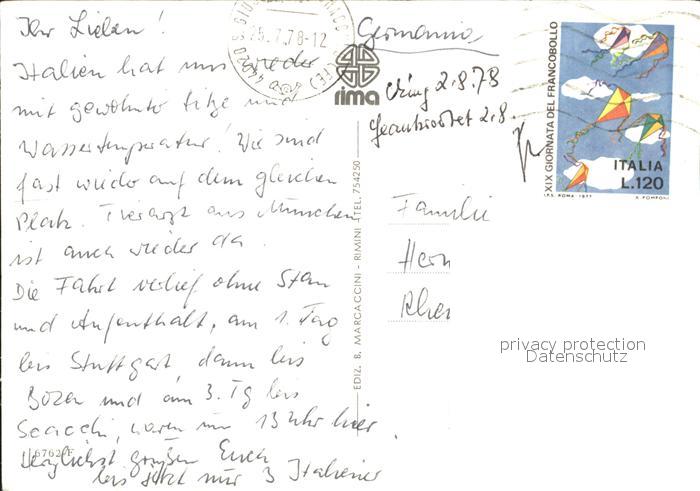 Ihr Lieben!
Italien hat uns wieder
mit gewohnter Hitze und
Wassertemperatur! Wir sind
fast wieder auf dem gleichen
Platz. Tierarzt aus München
ist auch wieder da.
Die Fahrt verlief ohne Stau
und Aufenthalt, am 1. Tag
bis Stuttgart, dann bis
Bozen und am 3. Tg bis
Scacchi, waren um 13 Uhr hier.
Herzlichst grüßen Euch
bis jetzt nur 3 Italiener
67621/F
25.7.78-12
Germania
rima
Eing 2.8.78
Geantwortet 2.8.
EDIZ. B. MARCACCINI - RIMINI - TEL. 754250
XIX GIORNATA DEL FRANCOBOLLO
ITALIA
L.120
I.P.S. ROMA 1977
Familie
privacy protection
Datenschutz